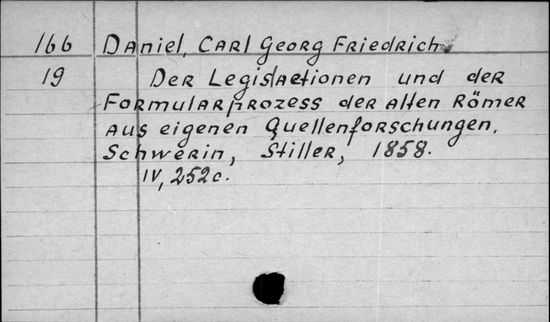 166 Daniel, Carl Georg Friedrich
19 Der Legislactionen und der
Formularprozess der alten Römer
aus eigenen Quellenforschungen.
Schwerin, Stiller, 1858.
IV, 252 c.